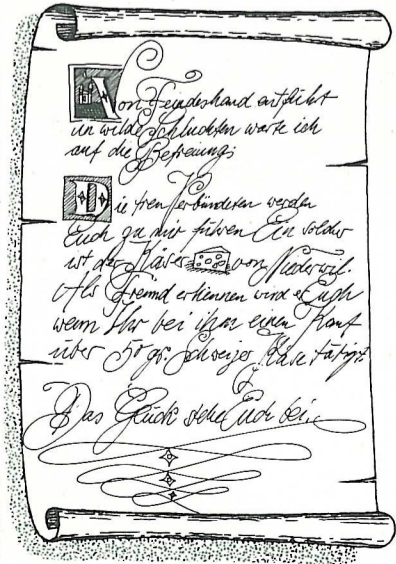 Von Feindeshand entführt
in wilde Schluchten warte ich
auf die Befreiung
Die treu Verbündeten werden
Euch zu mir führen Ein solcher
ist der Käser von Niederwil.
Als Freund erkennen wird er Euch
wenn Ihr bei ihm einen Kauf
über 50 gr. Schweizer Käse tätigt.
Das Glück stehe Euch bei.